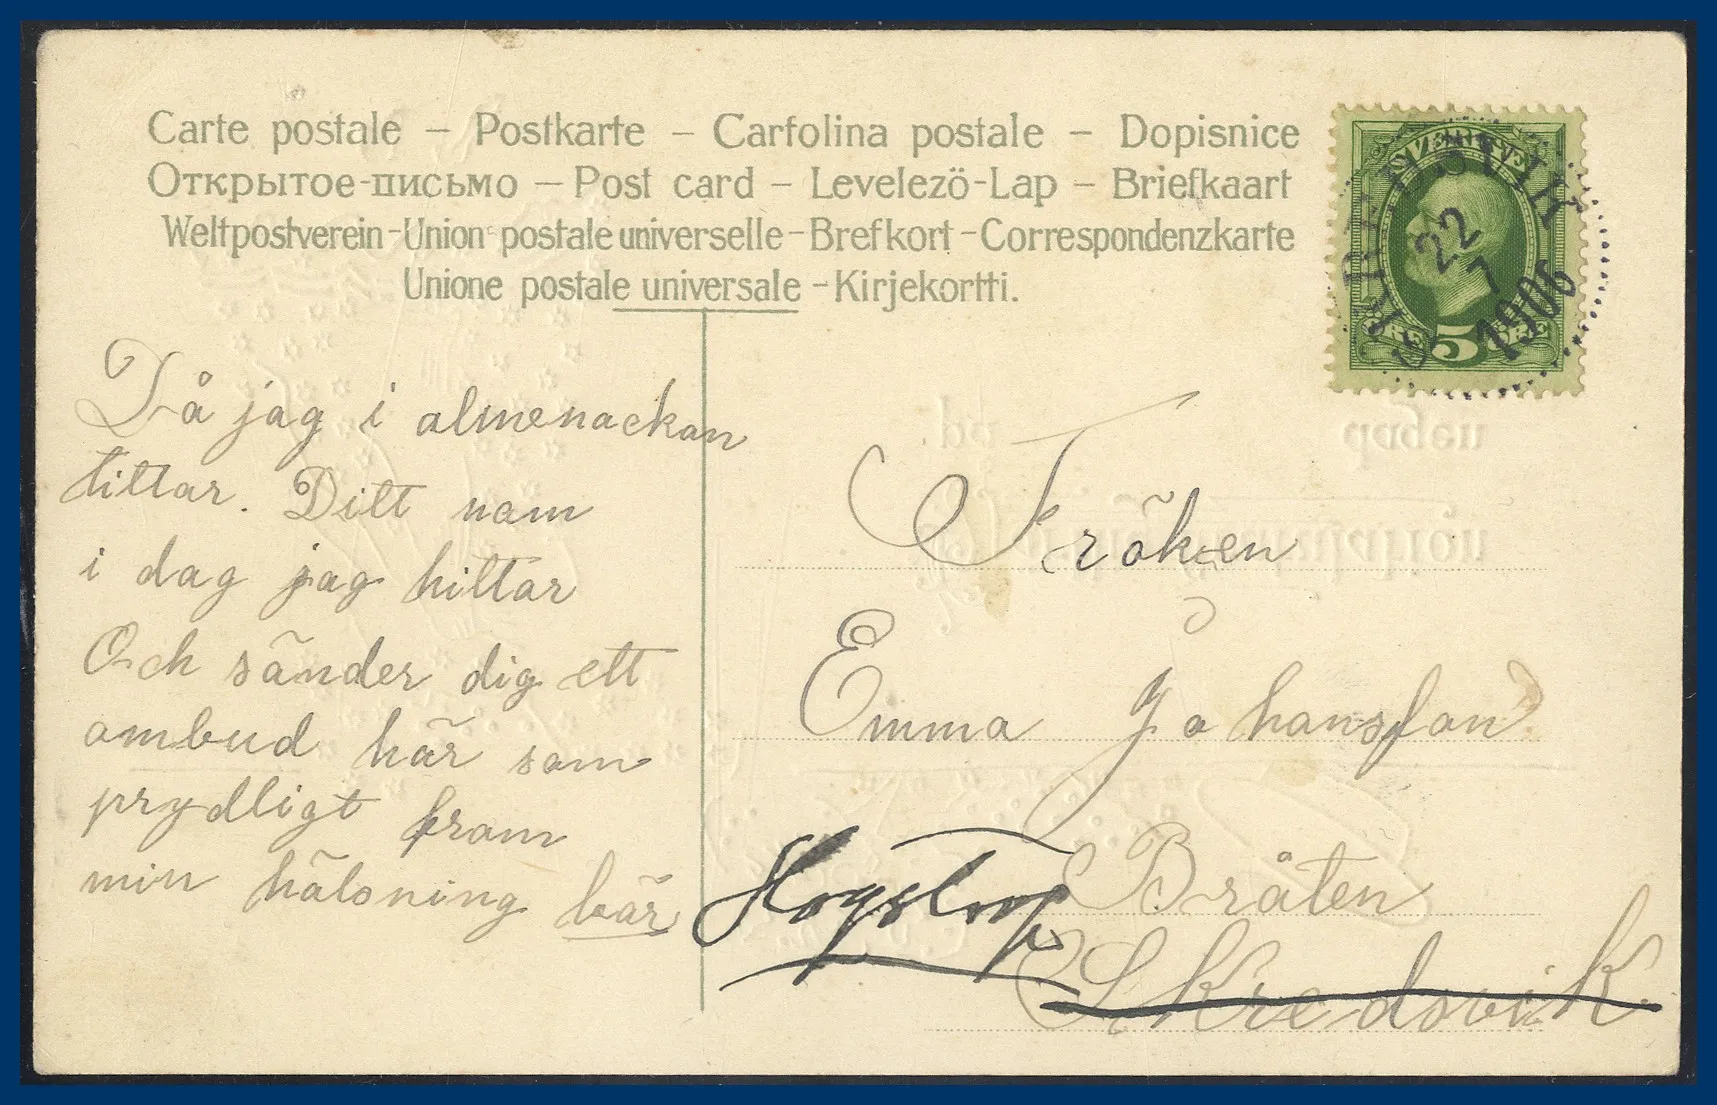 Carte postale – Postkarte – Cartolina postale – Dopisnice
Открытое-письмо – Post card – Levelezö-Lap – Briefkaart
Weltpostverein – Union postale universelle – Brefkort – Correspondenzkarte
Unione postale universale – Kirjekortti.
SVERIGE
5
ÖRE
22
7
1906
Då jag i almenackan
tittar. Ditt nam
i dag jag hittar
Och sänder dig ett
ombud här som
prydligt fram
min hälsning bär
Fröken
Emma Johansson
Bråten
Skredsvik.